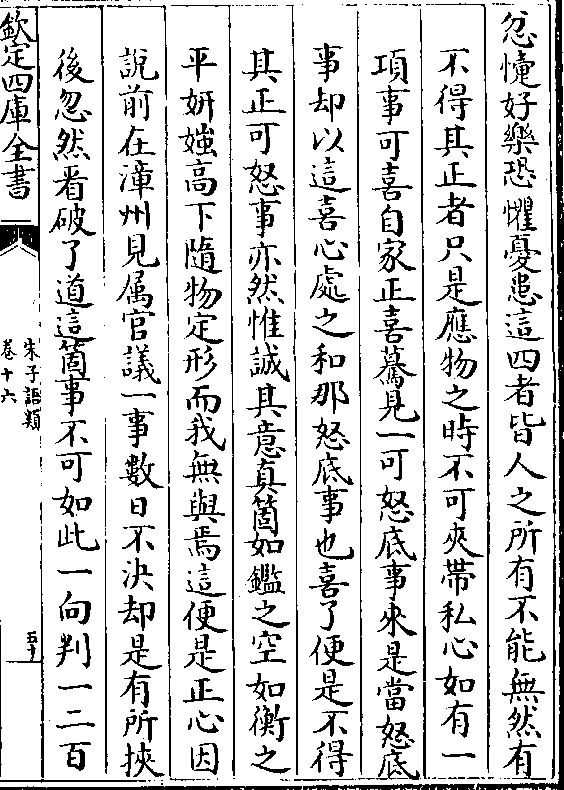 忿懥好樂恐懼憂患這四者皆人之所有不能無然有
不得其正者只是應物之時不可夾帶私心如有一
項事可喜自家正喜驀見一可怒底事來是當怒底
事却以這喜心處之和那怒底事也喜了便是不得
其正可怒事亦然惟誠其意真箇如鑑之空如衡之
平妍媸高下隨物定形而我無與焉這便是正心因
說前在漳州見属官議一事數日不決却是有所挾
後忽然看破了道這箇事不可如此一向判一二百
欽定四庫全書
朱子語類
卷十六
五十